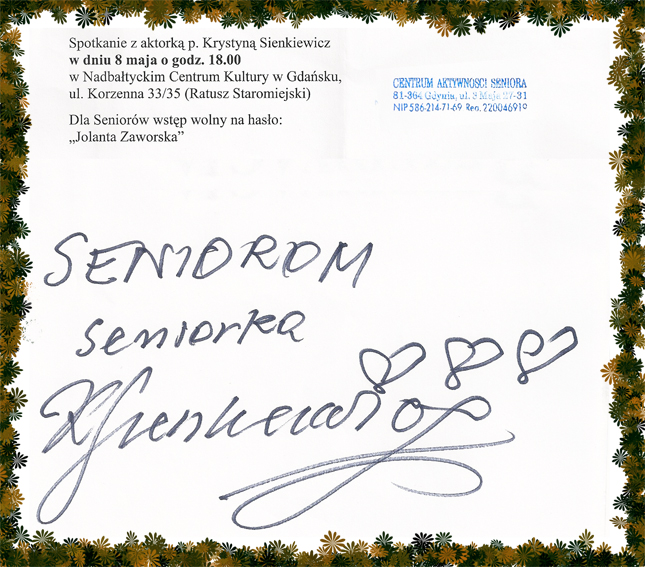 Spotkanie z aktorką p. Krystyną Sienkiewicz
w dniu 8 maja o godz. 18.00
w Nadbałtyckim Centrum Kultury w Gdańsku,
ul. Korzenna 33/35 (Ratusz Staromiejski)
Dla Seniorów wstęp wolny na hasło:
„Jolanta Zaworska”
CENTRUM AKTYWNOŚCI SENIORA
81-364 Gdynia, ul. 3 Maja 27-31
NIP 586-214-71-69 Reg. 220046910
SENIOROM
seniorka
KSienkiewicz